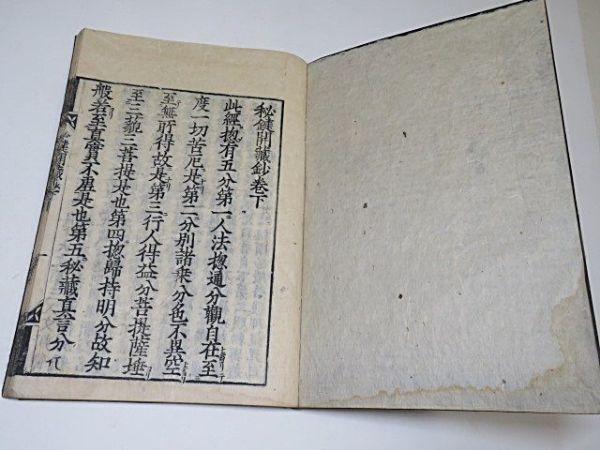 秘鍵開藏鈔卷下
此經揔有五分第一人法揔通分觀自在至
度一切苦厄是第二分別諸乘分色不異空
至無所得故是第三行人得益分菩提薩埵
至三藐三菩提是也第四揔歸持明分故知
般若至真實不虛是也第五秘藏真言分